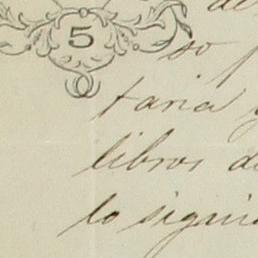 5
de
so
taria y
libros de
lo siguie